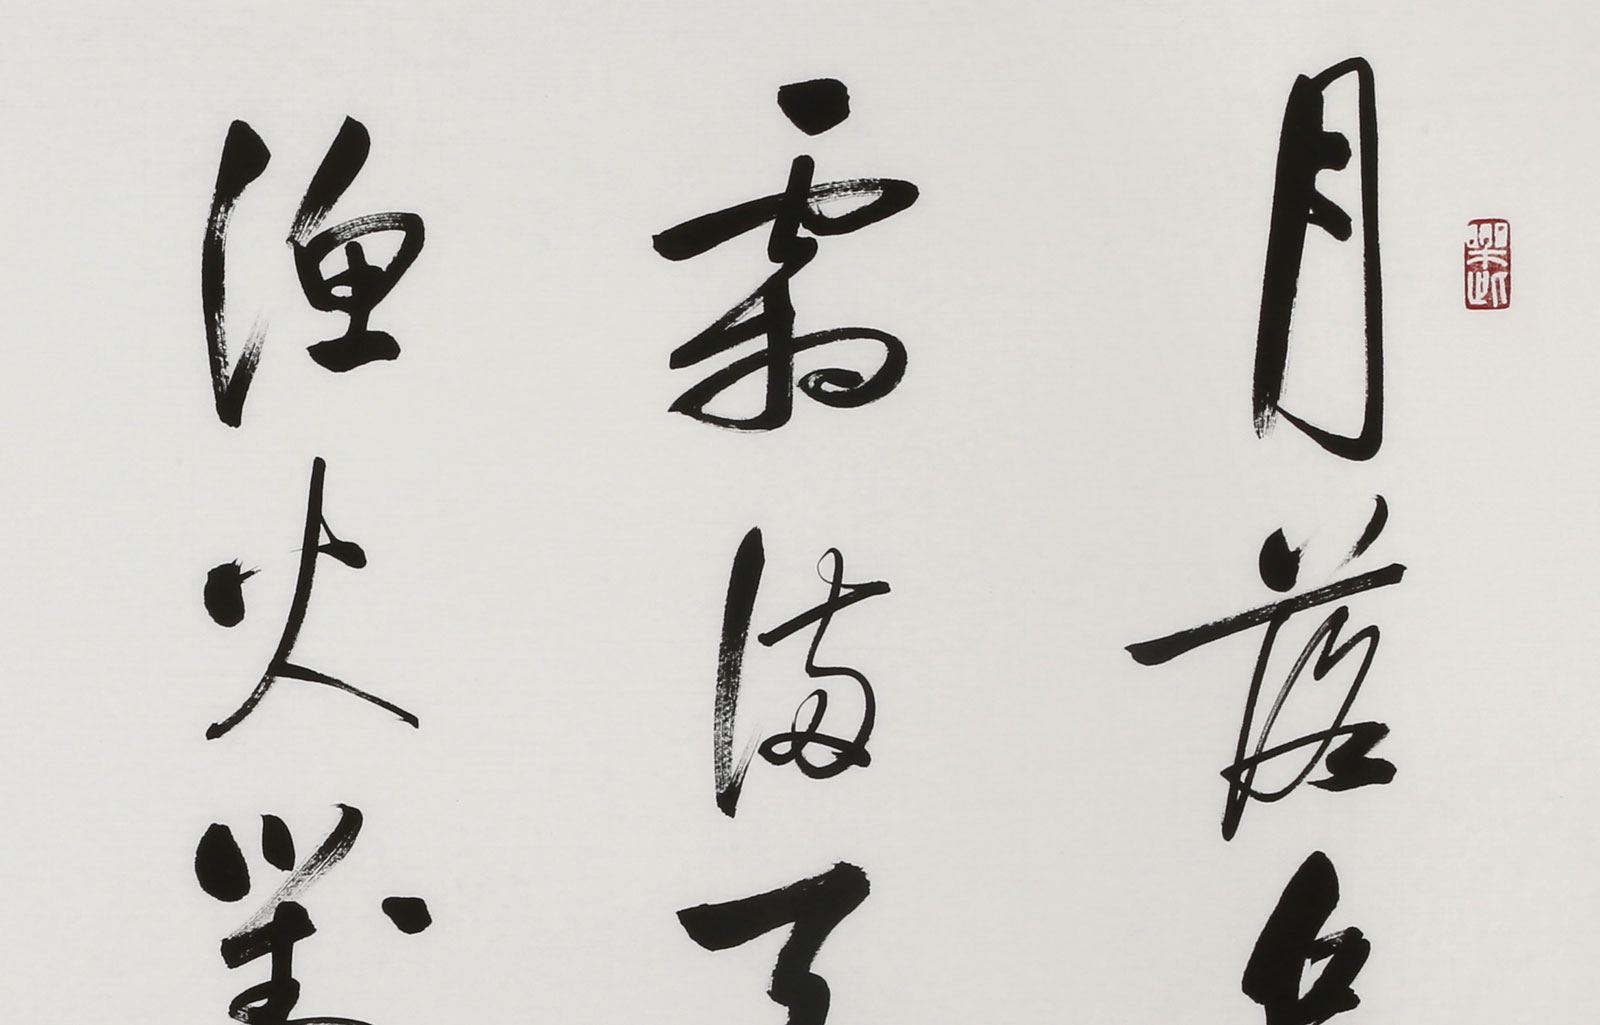 月落烏
霜滿天
漁火對